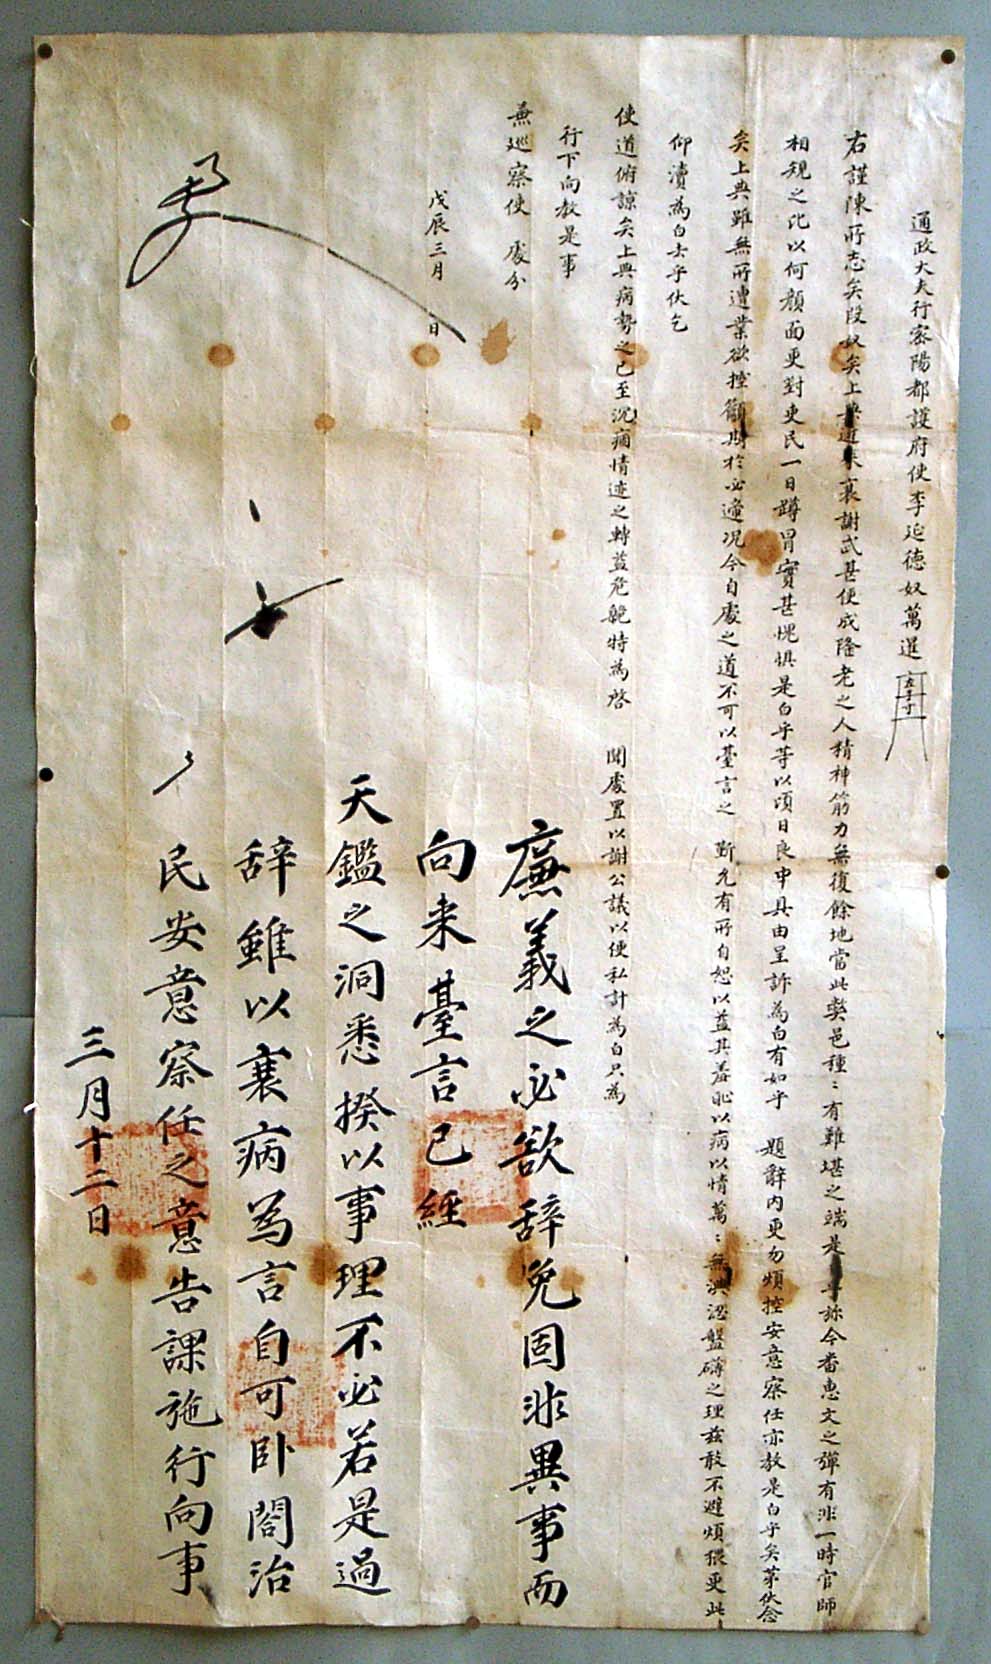 通政大夫行密陽都護府使李延德奴萬選
右謹陳所志矣段奴矣上典近來衰謝忒甚便成隆老之人精神筋力無復餘地當此獘邑種〻有難堪之端是乎旀今番惠文之彈有非一時官師
相規之比以何顏面更對吏民一日蹲冒實甚愧惧是白乎等以頃日良中具由呈訴爲白有如乎 題辭內更勿煩控安意察任亦教是白乎矣苐伏念
矣上典雖無所遭業欲控籲期於必遞况今自處之道不可以臺言之 斯允有所自恕以益其羞耻以病以情萬〻無淟涊盤礴之理玆敢不避煩猥更此
仰瀆爲白去乎伏乞
使道俯諒矣上典病勢之已至沉痼情迹之轉益危臲特爲啓 聞處置以謝公議以便私計爲白只爲
行下向教是事
兼巡察使 處分
戊辰三月 日
廉義之必欲辞免固非異事而
向来臺言已經
天鑑之洞悉揆以事理不必若是過
辞雖以衰病爲言自可卧閤治
民安意察任之意告課施行向事
三月十二日